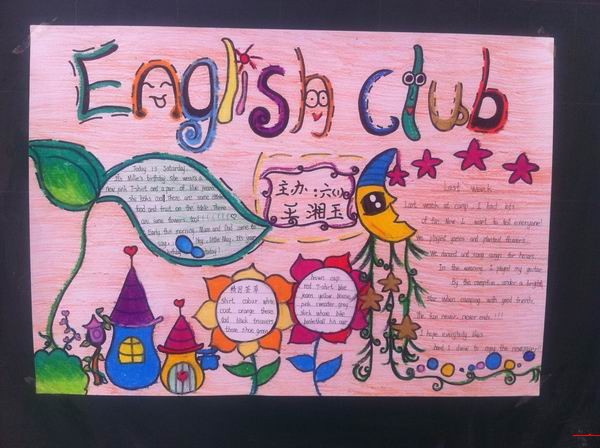 English club
Today is Saturday.
It's Millie's birthday. She wears a
new pink T-shirt and a pair of blue jeans.
she looks cool, there are some
food and fruit on the table. There
are some flowers, too!
Early this morning, Mum and Dad come to
say
主办:六(1)
王湘玉
Last week
Last week at camp I had lots
of fun. Now I want to tell everyone!
We played games and planted flowers.
We danced and sang songs for hours.
In the evening I played my guitar
By the campfire, under a bright
star when camping with good friends,
The fun never, never ends!!!
I hope everybody likes
and time to enjoy the newspaper!
shirt colour white
coat orange these
tall black trousers
those shoe green
brown cap
red T-shirt blue
jeans yellow blouse
pink sweater grey
shirt whose blue
basketball his our